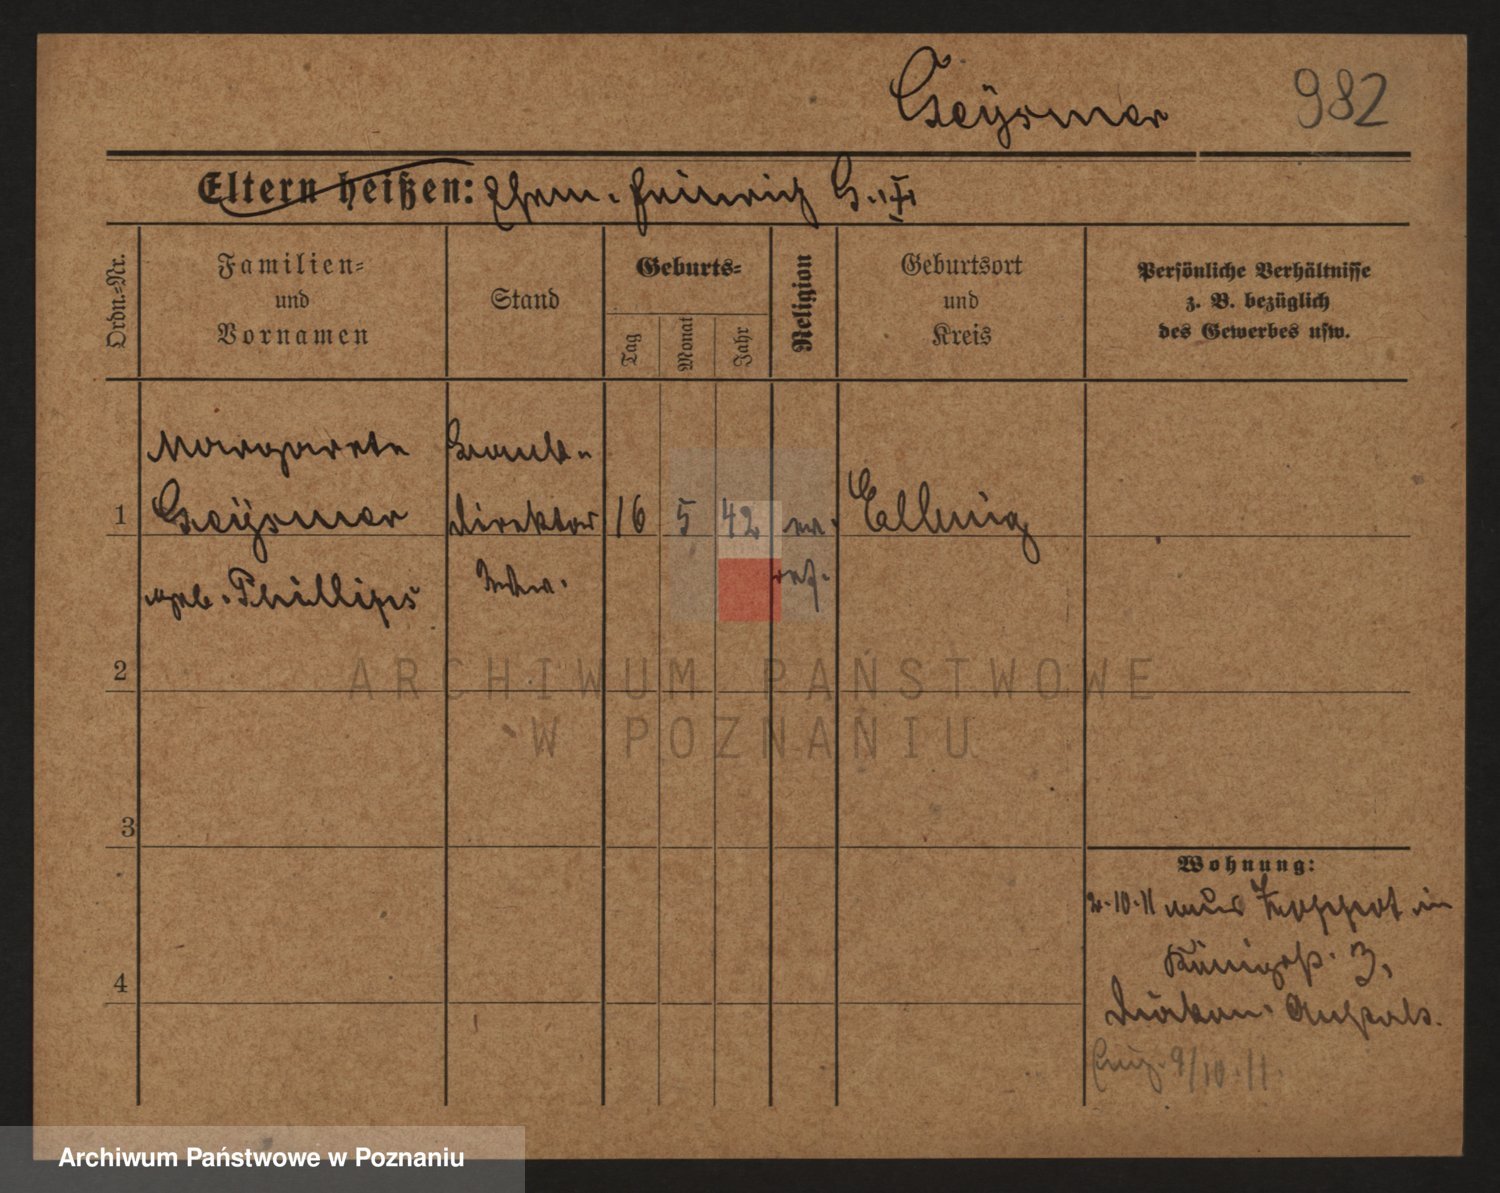 Geysmer 982
Eltern heißen: Ehem. Heinrich G. †
Ordn.-Nr.
Familien-
und
Vornamen
Stand
Geburts-
Tag
Monat
Jahr
Religion
Geburtsort
und
Kreis
Persönliche Verhältnisse
z. B. bezüglich
des Gewerbes usw.
Margarete
1 Geysmer
geb. Phillips
Bank-
direktor
Wtw.
16 5 42 ev.
ref.
Elbing
2
3
4
Wohnung:
2.10.11 aus Zoppot in
Königsstr. 3,
Diakon. Anstalt.
9/10.11.
ARCHIWUM PAŃSTWOWE
W POZNANIU
Archiwum Państwowe w Poznaniu